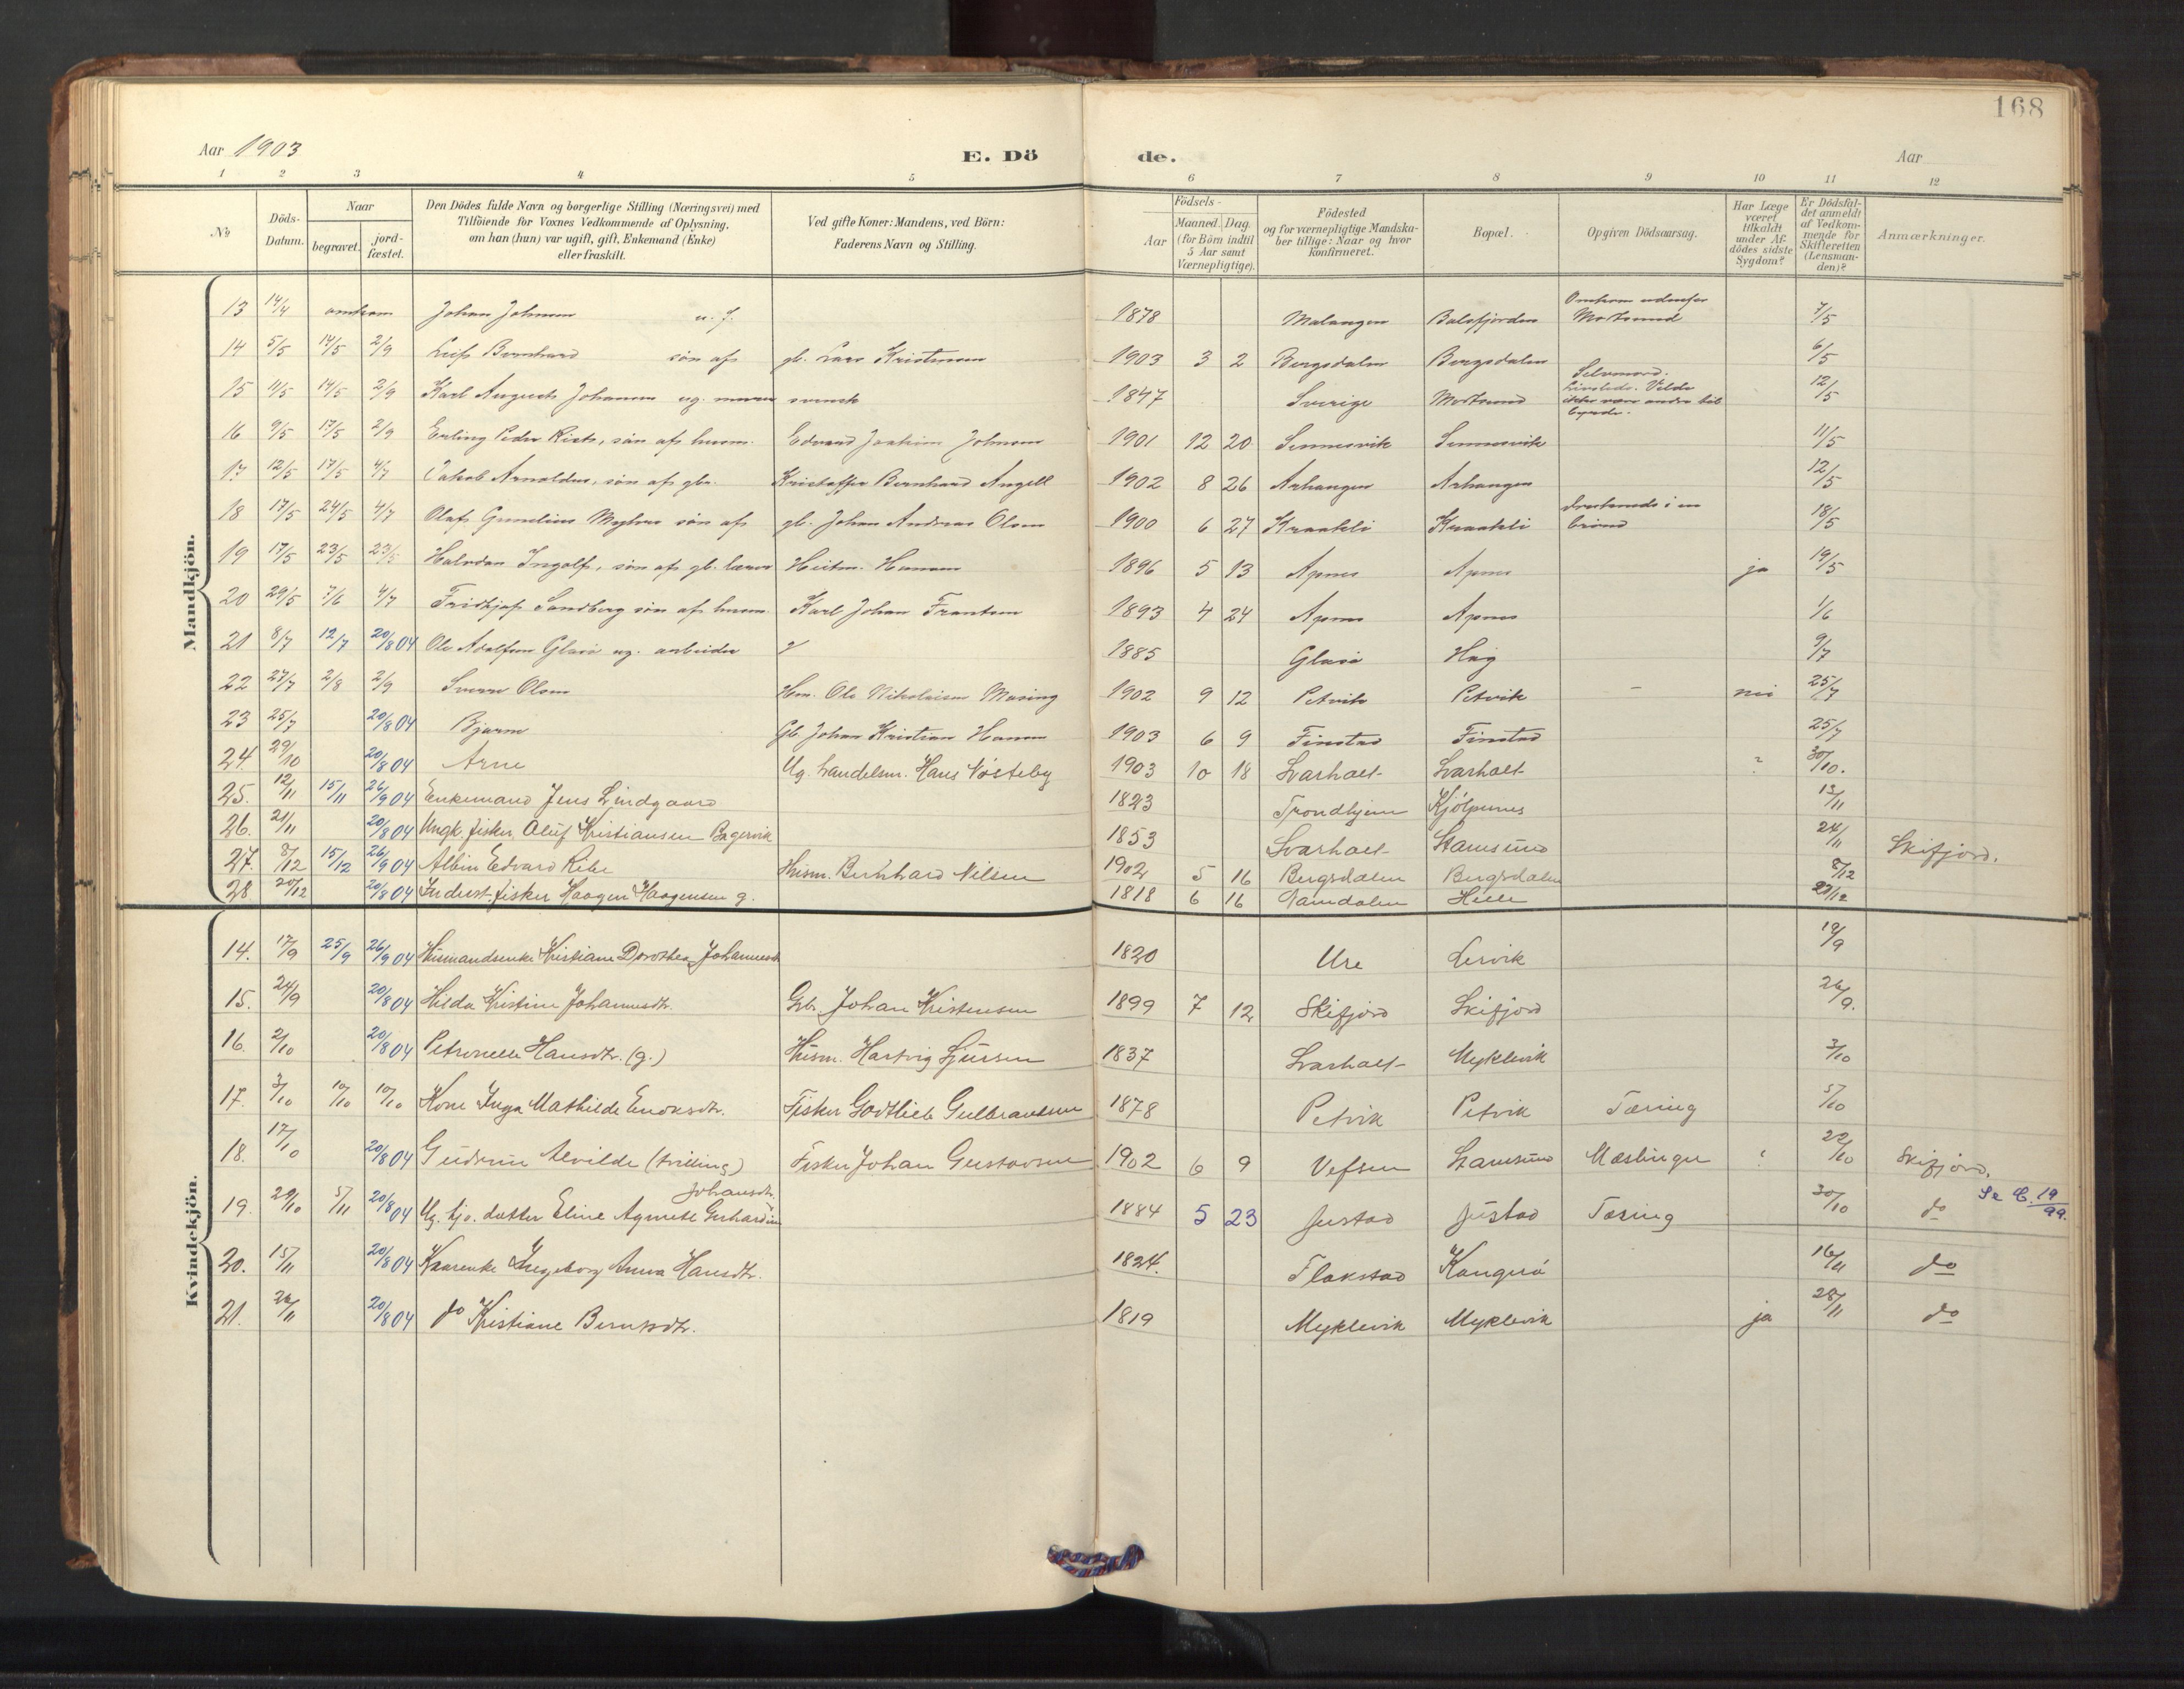 168
Aar 1903
E. Dö
de.
Aar
1 2 3 4 5 6 7 8 9 10 11 12
No
Döds-Datum.
Naar
begravet.
jord-fæstet.
Den Dödes fulde Navn og borgerlige Stilling (Næringsvei) med
Tilföiende for Voxnes Vedkommende af Oplysning,
om han (hun) var ugift, gift, Enkemand (Enke)
eller fraskilt.
Ved gifte Koner: Mandens, ved Börn:
Faderens Navn og Stilling.
Födsels-
Aar
Maaned. Dag.
(for Börn indtil
5 Aar samt
Værnepligtige).
Födested
og for værnepligtige Mandska-
ber tillige: Naar og hvor
konfirmeret.
Bopæl.
Opgiven Dödsaarsag.
Har Læge
været
tilkaldt
under Af-
dödes sidste
Sygdom?
Er Dödsfal-
det anmeldt
af Vedkom-
mende for
Skifteretten
(Lensman-
den)?
Anmærkninger.
Mandkjön.
13 14/4 omkom Johan Johnsen u. f. 1878 Malangen Balsfjorden Omkom udenfor Mortsund 7/5
14 5/5 14/5 2/9 Leif Bernhard søn af gb. Lars Kristensen 1903 3 2 Bergsdalen Bergsdalen 6/5
15 11/5 14/5 2/9 Karl August Johansen ug. svensk 1847 Sverige Mortsund Selvmord. Livsleds. Vilde ikke være andre til byrde. 12/5
16 9/5 17/5 2/9 Erling Peder søn af husm. Edvard Joakim Johnsen 1901 12 20 Sennesvik Sennesvik 11/5
17 12/5 17/5 4/7 Jakob Arnoldus, søn af gbr. Kristoffer Bernhard Angell 1902 8 26 Arhaugen Arhaugen 12/5
18 17/5 24/5 4/7 Olaf søn af gb. Johan Andreas Olsen 1900 6 27 Kraakli Kraakli druknede i en brønd 18/5
19 17/5 23/5 23/5 Halvdan Ingolf, søn af gb. lærer Hansen 1896 5 13 Apnes Apnes ja 19/5
20 29/5 7/6 4/7 Fridtjof Sandberg søn af husm. Karl Johan Frantsen 1893 4 24 Apnes Apnes 1/6
21 8/7 12/7 20/8 04 Ole Adolfsen Glasø ug. arbeider 1885 Glasø Hag 9/7
22 27/7 2/8 2/9 Sverre Olsen Hm. Ole Nikolaisen Masing 1902 9 12 Petvik Petvik – nei 25/7
23 25/7 20/8 04 Bjarne Gb. Johan Kristian Hansen 1903 6 9 Finstad Finstad 25/7
24. 29/10 20/8 04 Arne Ug. handelsm. Hans Nøsteby 1903 10 18 Svarholt Svarholt ? 30/10.
25. 12/11 15/11 26/9 04 Enkemand Jens Lindgaard 1823 Trondhjem Kjølpenes 13/11
26. 21/11 20/8 04 Ungk. fisker Oluf Kristiansen 1853 Svarholt Stamsund 24/11 Skifjord.
27. 8/12 15/12 26/9 04 Albin Edvard Husm. Bernhard Nilsen 1902 5 16 Bergsdalen Bergsdalen 8/12
28 20/12 20/8 04 Inderst. fisker Haagen Haagensen g. 1818 6 16 Namdalen Helle 23/12
Kvindekjön.
14. 17/9 25/9 26/9 04 Husmandsenke Kristiane Dorothea Johannesdt 1820 Ure Lervik 19/9
15. 24/9 20/8 04 Hilda Kristine Johannesdtr. Gbr. Johan Kristensen 1899 7 12 Skifjord Skifjord 26/9.
16. 2/10 20/8 04 Petronelle Hansdtr. (g.) Husm. Hartvig Sjursen 1837 Svarholt Myklevik 3/10
17. 3/10 10/10 10/10 Kone Inga Mathilde Enoksdtr. Fisker Godtlieb Gulbrandsen 1878 Petvik Petvik Tæring 5/10
18. 17/10 20/8 04 Gudrun Alvilde (tvilling) Fisker Johan Gustavsen 1902 6 9 Vefsen Stamsund Mæslinger ? 22/10 Skifjord.
19. 29/10 5/11 20/8 04 Ug. tje. datter Eline Agnete Gerhardine Johansdtr. 1884 5 23 Justad Justad Tæring 30/10 do Se C. 19/99.
20. 15/11 20/8 04 Kaarenke Ingeborg Anna Hansdtr. 1824. Flakstad Kangerø 16/11 do
21. 26/11 20/8 04 do Kristiane Berntsdtr. 1819 Myklevik Myklevik ja 28/11 do